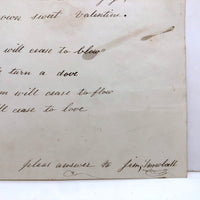 own sweet Valentine.
will cease to blow
turn a dove
will cease to flow
cease to love
please answer to Jimy